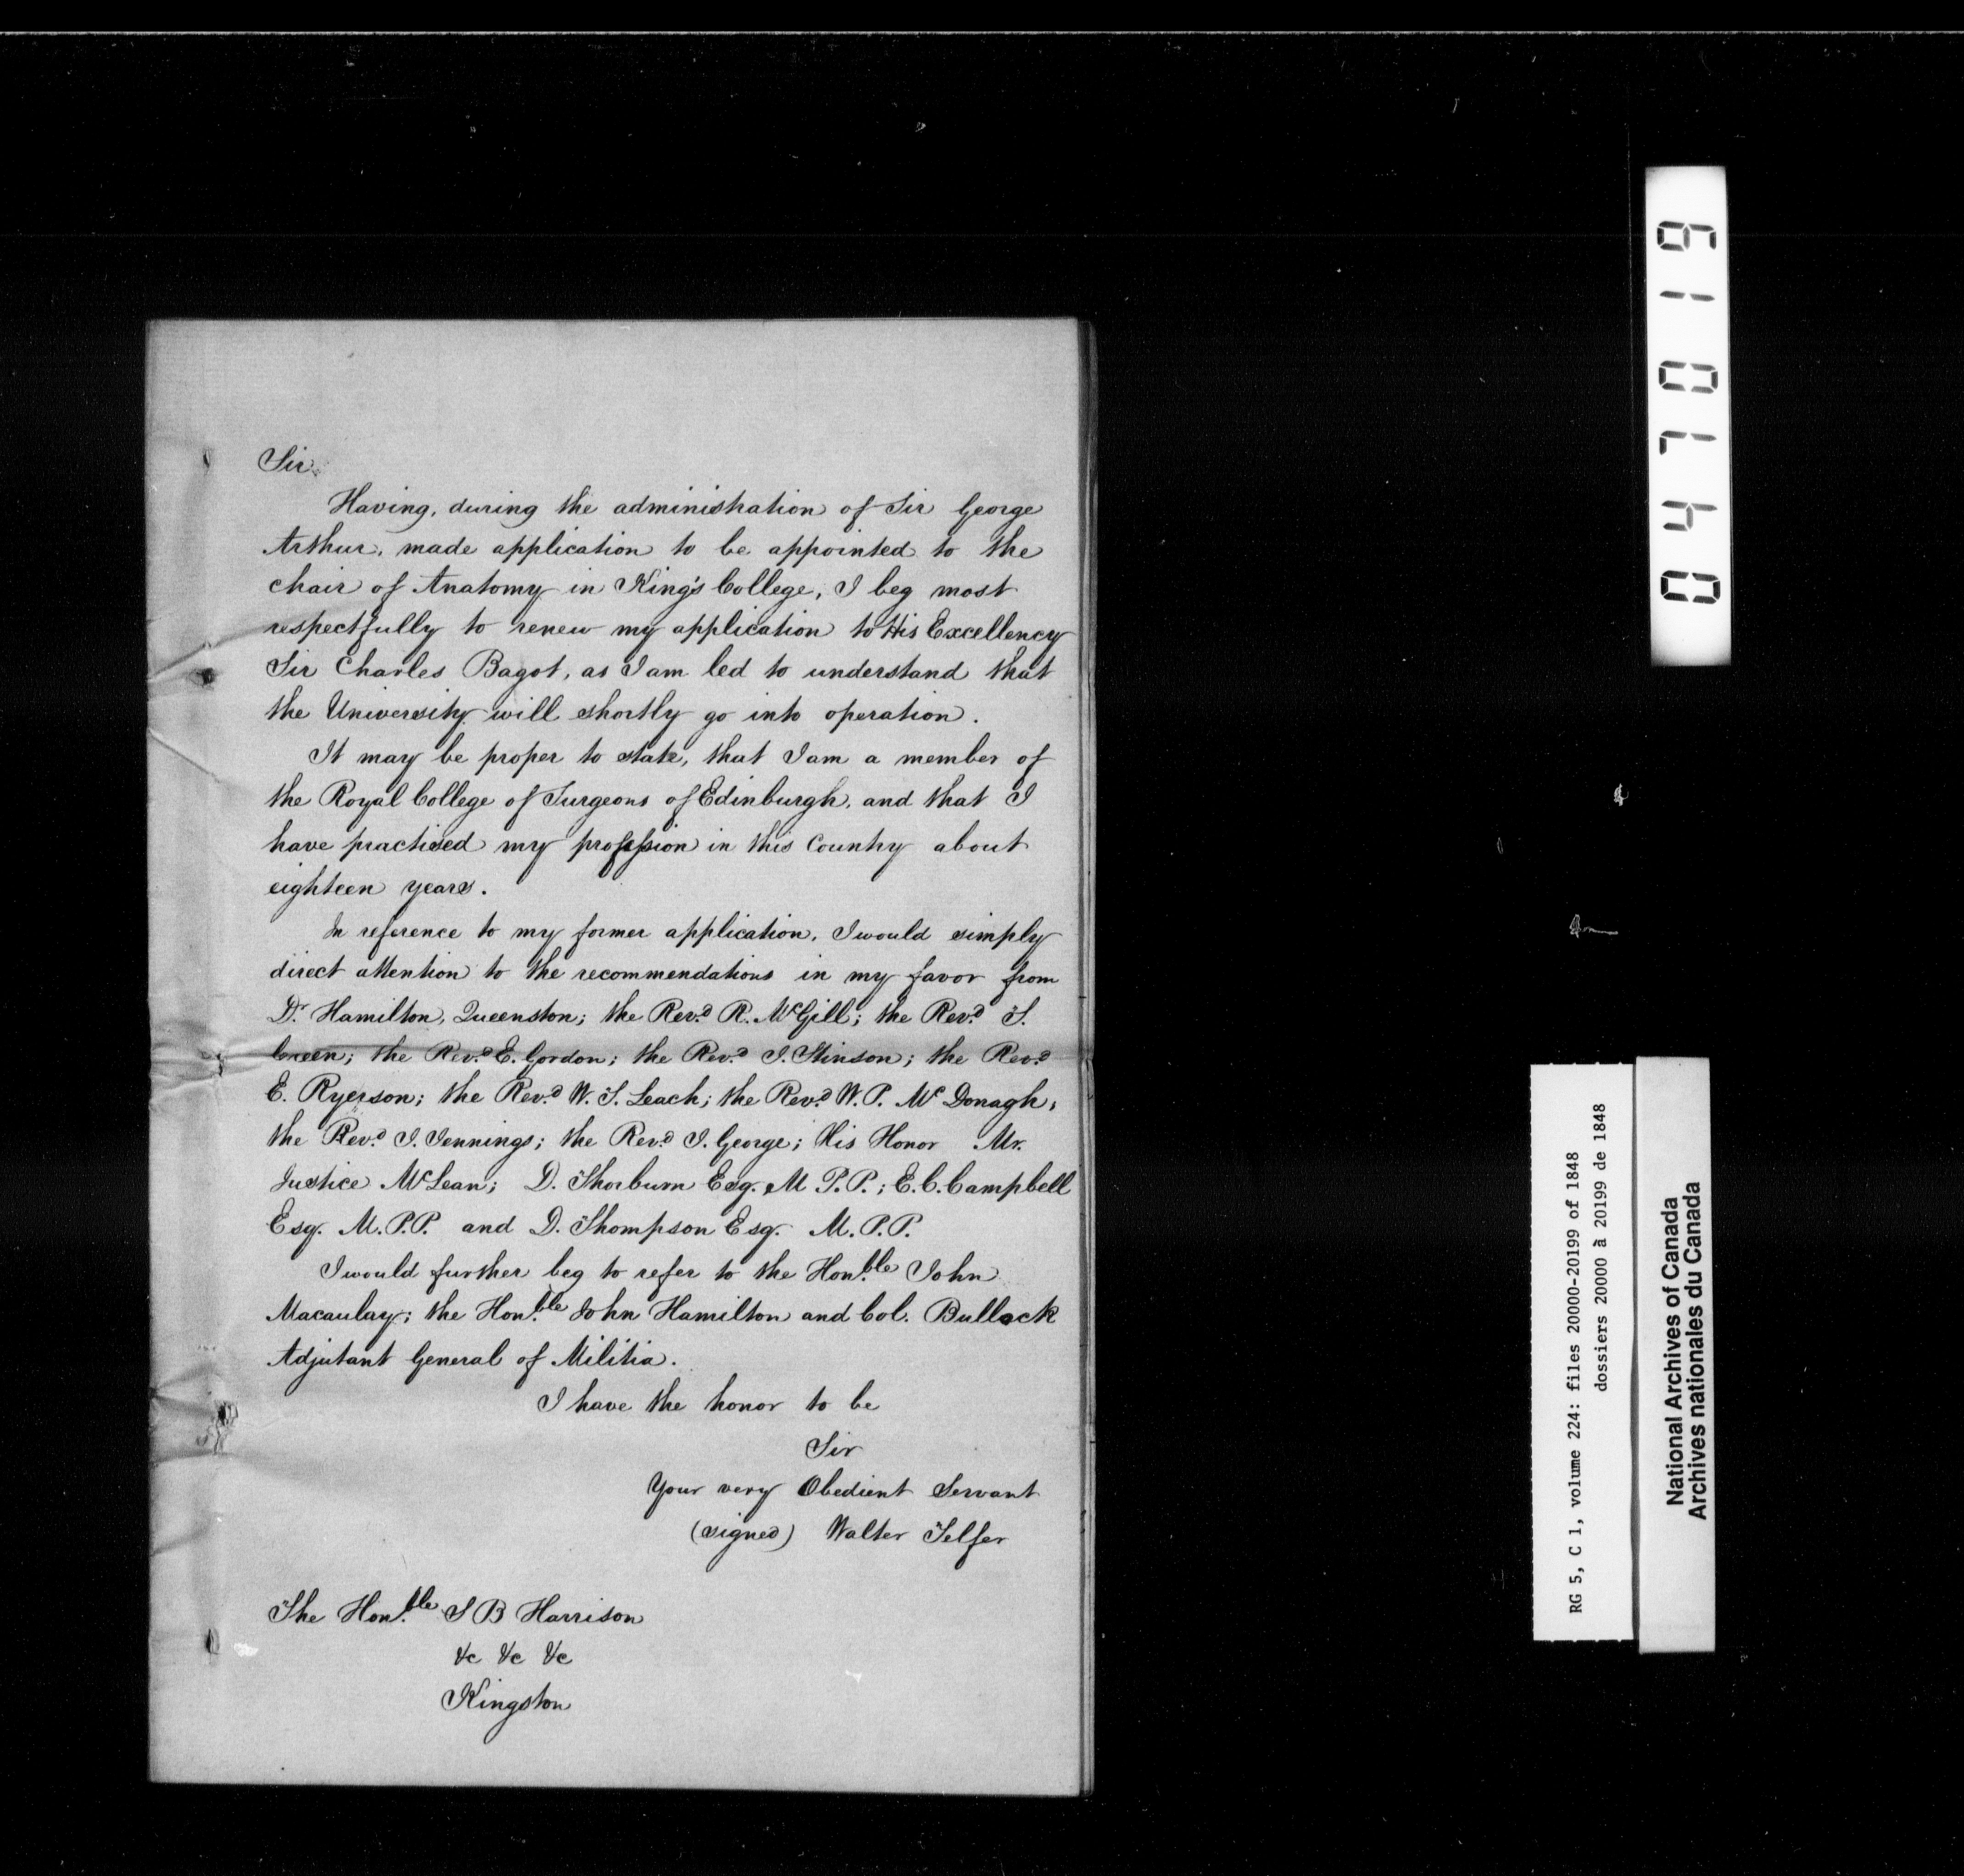 Sir
Having, during the administration of Sir George
Arthur, made application to be appointed to the
chair of Anatomy in King's College, I beg most
respectfully to renew my application to His Excellency
Sir Charles Bagot, as I am led to understand that
the University will shortly go into operation.
It may be proper to state, that I am a member of
the Royal College of Surgeons of Edinburgh, and that I
have practised my profession in this Country about
eighteen years.
In reference to my former application, I would simply
direct attention to the recommendations in my favor from
Dr. Hamilton, Queenston; the Revd. R. McGill; the Revd. T.
Creen; the Revd. E. Gordon; the Revd. J. Stinson; the Revd.
E. Ryerson; the Revd. W. T. Leach; the Revd. W. P. McDonagh;
the Revd. J. Jennings; the Revd. J. George; His Honor Mr.
Justice McLean; D. Thorburn Esq. M P.P.; E. C. Campbell
Esq. M.P.P. and D. Thompson Esq. M.P.P.
I would further beg to refer to the Honble. John
Macaulay; the Honble. John Hamilton and Col. Bullock
Adjutant General of Militia.
I have the honor to be
Sir
Your very Obedient Servant
(signed) Walter Telfer
The Honble. S B Harrison
&c &c &c
Kingston
047019
RG 5, C 1, volume 224: files 20000-20199 of 1848
dossiers 20000 à 20199 de 1848
National Archives of Canada
Archives nationales du Canada